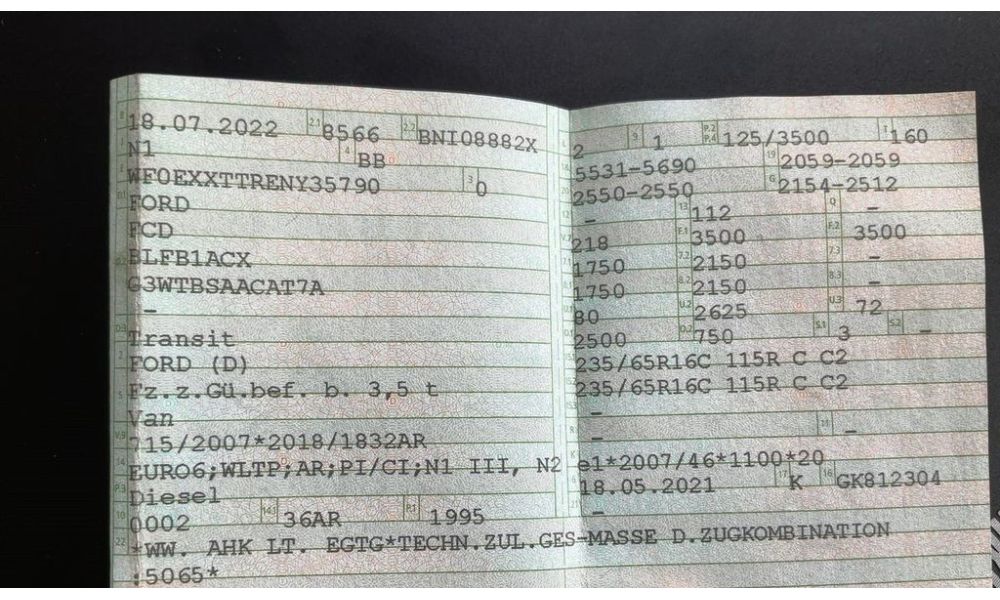 18.07.2022 2.1 8566 2.2 BNI08882X
N1 4 BB
WF0EXXTTRENY35790 3 0
FORD
FCD
BLFB1ACX
G3WTBSAACAT7A
–
D.3 Transit
2 FORD (D)
5 Fz.z.Gü.bef. b. 3,5 t
Van
V.9 715/2007*2018/1832AR
14 EURO6;WLTP;AR;PI/CI;N1 III, N2
P.3 Diesel
10 0002 14.1 36AR P.1 1995
22 *WW. AHK LT. EGTG*TECHN.ZUL.GES-MASSE D.ZUGKOMBINATION
:5065*
2 S 1 P.2 P.4 125/3500 T 160
18 5531-5690 19 2059-2059
20 2550-2550 G 2154-2512
12 – 13 112 Q –
V.7 218 F.1 3500 F.2 3500
7.1 1750 7.2 2150 7.3 –
8.1 1750 8.2 2150 8.3 –
U.1 80 U.2 2625 U.3 72
O.1 2500 O.2 750 S.1 3 S.2 –
235/65R16C 115R C C2
235/65R16C 115R C C2
–
R – 11 –
K e1*2007/46*1100*20
6 18.05.2021 17 K 16 GK812304
21 –